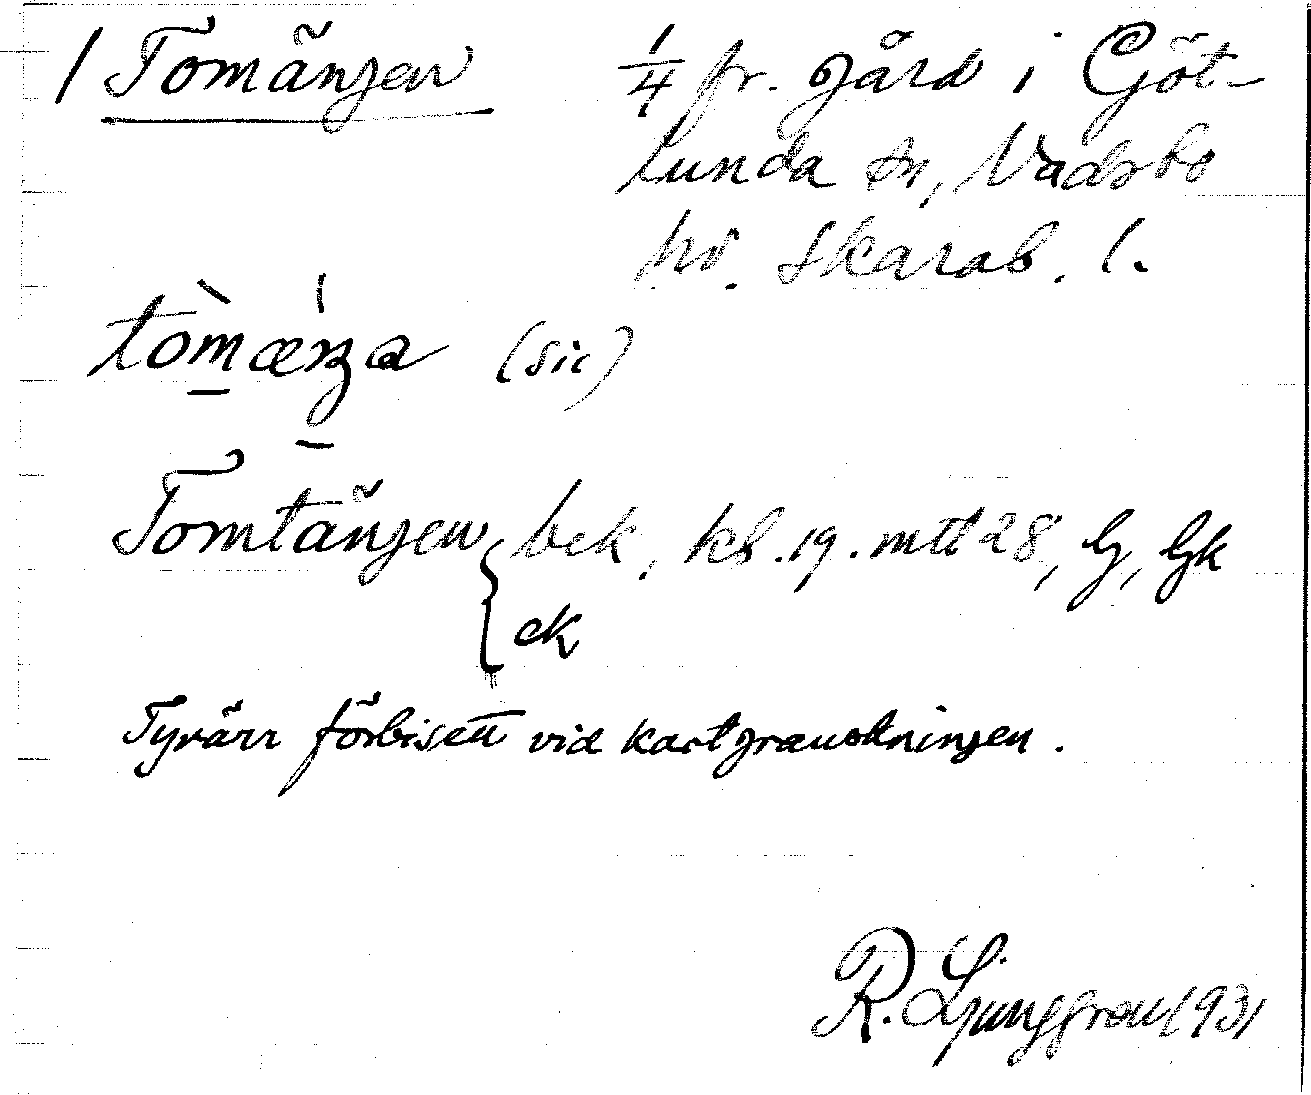 1 Tomängen 1/4 fr. gård i Göt-
lunda sn, Vadsbo
hd. Skarab. l.
tòmæŋa (sic)
Tomtängen { bek, kb. 19. mtt 28, lj, ljk
ek
Tyvärr förbisett vid kartgranskningen.
R. Ljunggren 1931